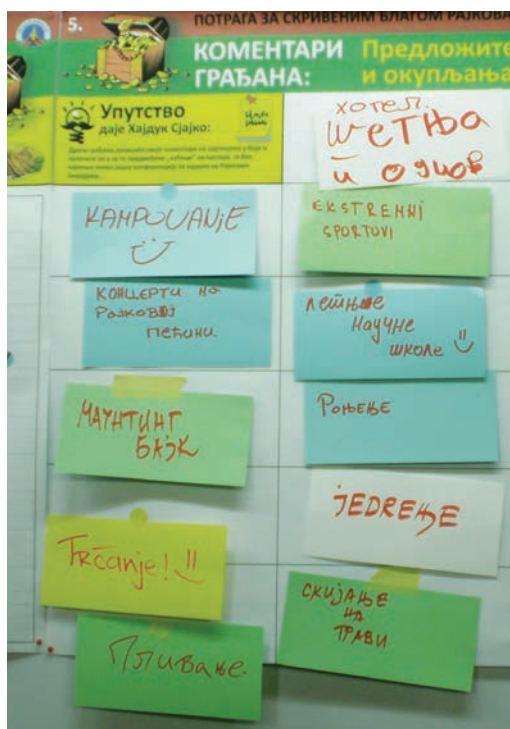 5.
ПОТРАГА ЗА СКРИВЕНИМ БЛАГОМ РАЈКОВА
КОМЕНТАРИ
ГРАЂАНА:
Предложите
и окупљања
Упутство
даје Хајдук Сјајко:
хотел.
шетња
и одмор
КАМПОВАЊЕ
EKSTREMНI
SPORTOVI
КОНЦЕРТИ на
Рајковој
пећини.
летње
научне
школе
МАУНТИНГ
БАЈК
Роњење
ЈЕDREЊЕ
Trčanje!
СКИЈАЊЕ
НА
ТРАВИ
Пливање.